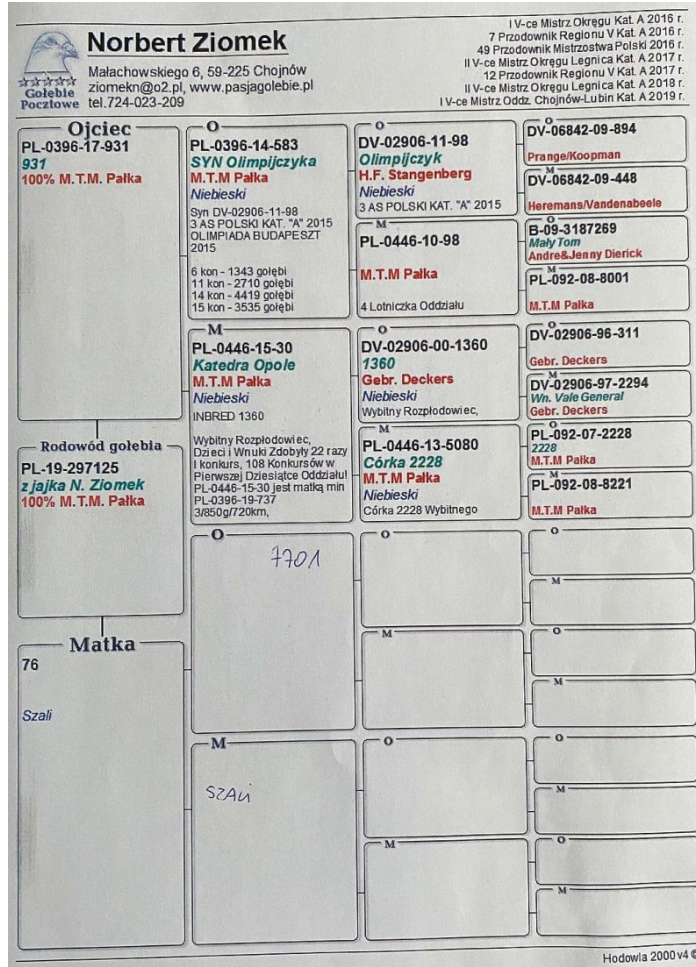 Gołębie
Pocztowe
Norbert Ziomek
Małachowskiego 6, 59-225 Chojnów
ziomekn@o2.pl, www.pasjagolebie.pl
tel.724-023-209
I V-ce Mistrz Okręgu Kat. A 2016 r.
7 Przodownik Regionu V Kat. A 2016 r.
49 Przodownik Mistrzostwa Polski 2016 r.
II V-ce Mistrz Okręgu Legnica Kat. A 2017 r.
12 Przodownik Regionu V Kat. A 2017 r.
II V-ce Mistrz Okręgu Legnica Kat. A 2018 r.
I V-ce Mistrz Oddz. Chojnów-Lubin Kat. A 2019 r.
Ojciec
PL-0396-17-931
931
100% M.T.M. Pałka
Rodowód gołębia
PL-19-297125
z jajka N. Ziomek
100% M.T.M. Pałka
Matka
76
Szali
O
PL-0396-14-583
SYN Olimpijczyka
M.T.M Pałka
Niebieski
Syn DV-02906-11-98
3 AS POLSKI KAT. "A" 2015
OLIMPIADA BUDAPESZT
2015
6 kon - 1343 gołębi
11 kon - 2710 gołębi
14 kon - 4419 gołębi
15 kon - 3535 gołębi
M
PL-0446-15-30
Katedra Opole
M.T.M Pałka
Niebieski
INBRED 1360
Wybitny Rozpłodowiec,
Dzieci i Wnuki Zdobyły 22 razy
I konkurs, 108 Konkursów w
Pierwszej Dziesiątce Oddziału!
PL-0446-15-30 jest matką min
PL-0396-19-737
3/850g/720km,
O
7701
M
SZALI
O
DV-02906-11-98
Olimpijczyk
H.F. Stangenberg
Niebieski
3 AS POLSKI KAT. "A" 2015
M
PL-0446-10-98
M.T.M Pałka
4 Lotniczka Oddziału
O
DV-02906-00-1360
1360
Gebr. Deckers
Niebieski
Wybitny Rozpłodowiec,
M
PL-0446-13-5080
Córka 2228
M.T.M Pałka
Niebieski
Córka 2228 Wybitnego
O
M
O
M
O
DV-06842-09-894
Prange/Koopman
M
DV-06842-09-448
Heremans/Vandenabeele
O
B-09-3187269
Mały Tom
Andre&Jenny Dierick
M
PL-092-08-8001
M.T.M Pałka
O
DV-02906-96-311
Gebr. Deckers
M
DV-02906-97-2294
Wn. Vale General
Gebr. Deckers
O
PL-092-07-2228
2228
M.T.M Pałka
M
PL-092-08-8221
M.T.M Pałka
O
M
O
M
O
M
O
M
Hodowla 2000 v4 ©